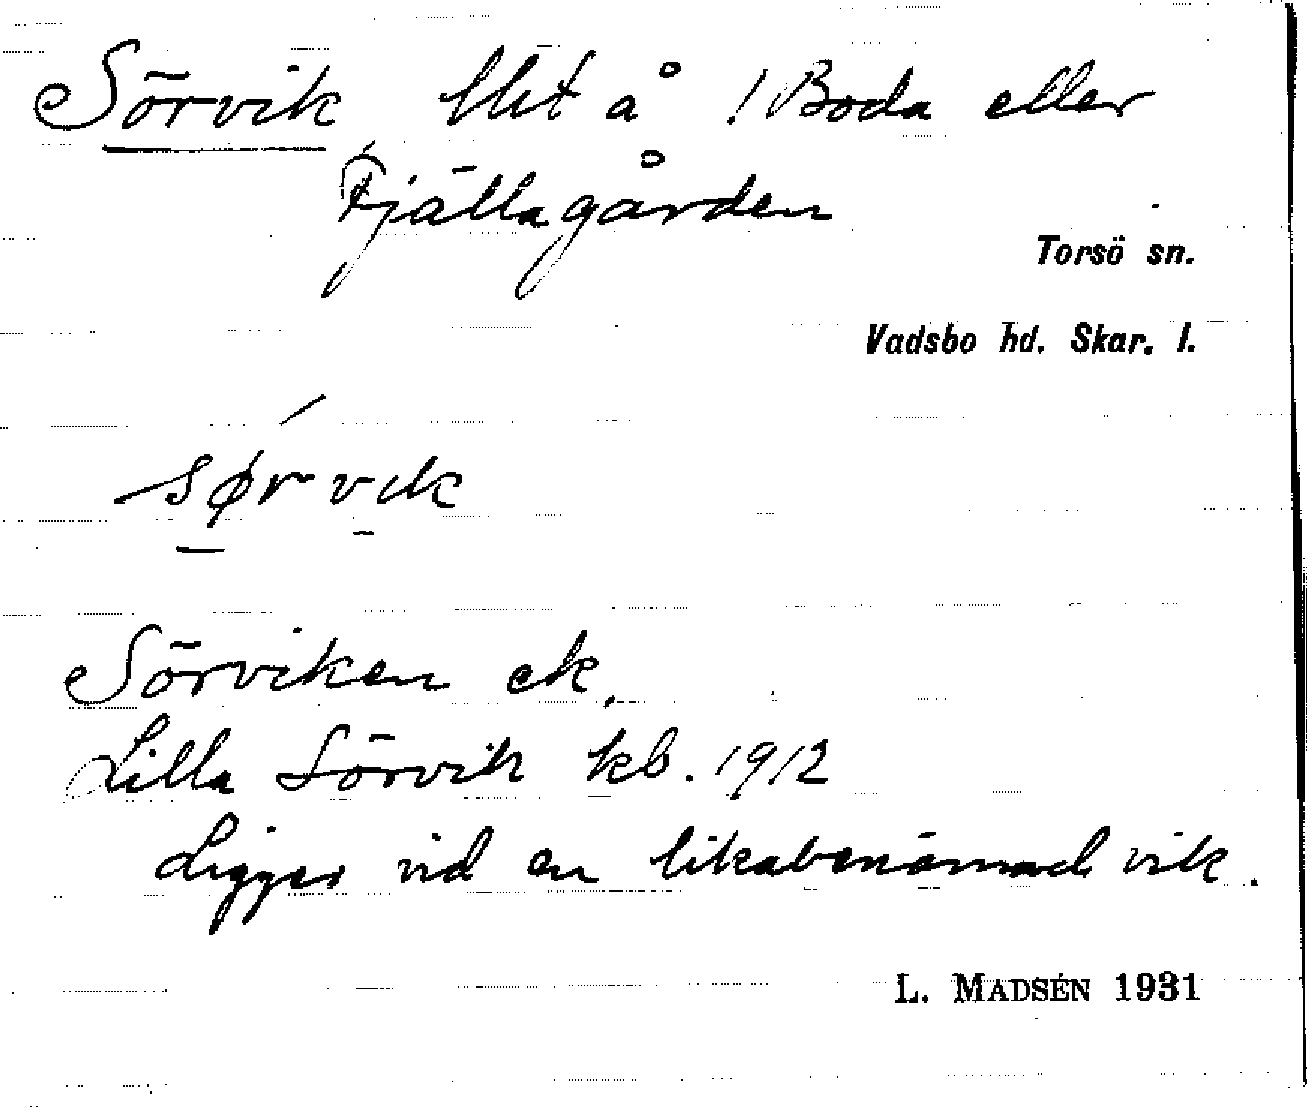 Sörvik lht å 1 Boda eller
Fjällagården
Torsö sn.
Vadsbo hd. Skar. l.
sørvik
Sörviken ek.
Lilla Sörvik kb. 1912
Ligger vid en likabenämnd vik.
L. MADSÉN 1931